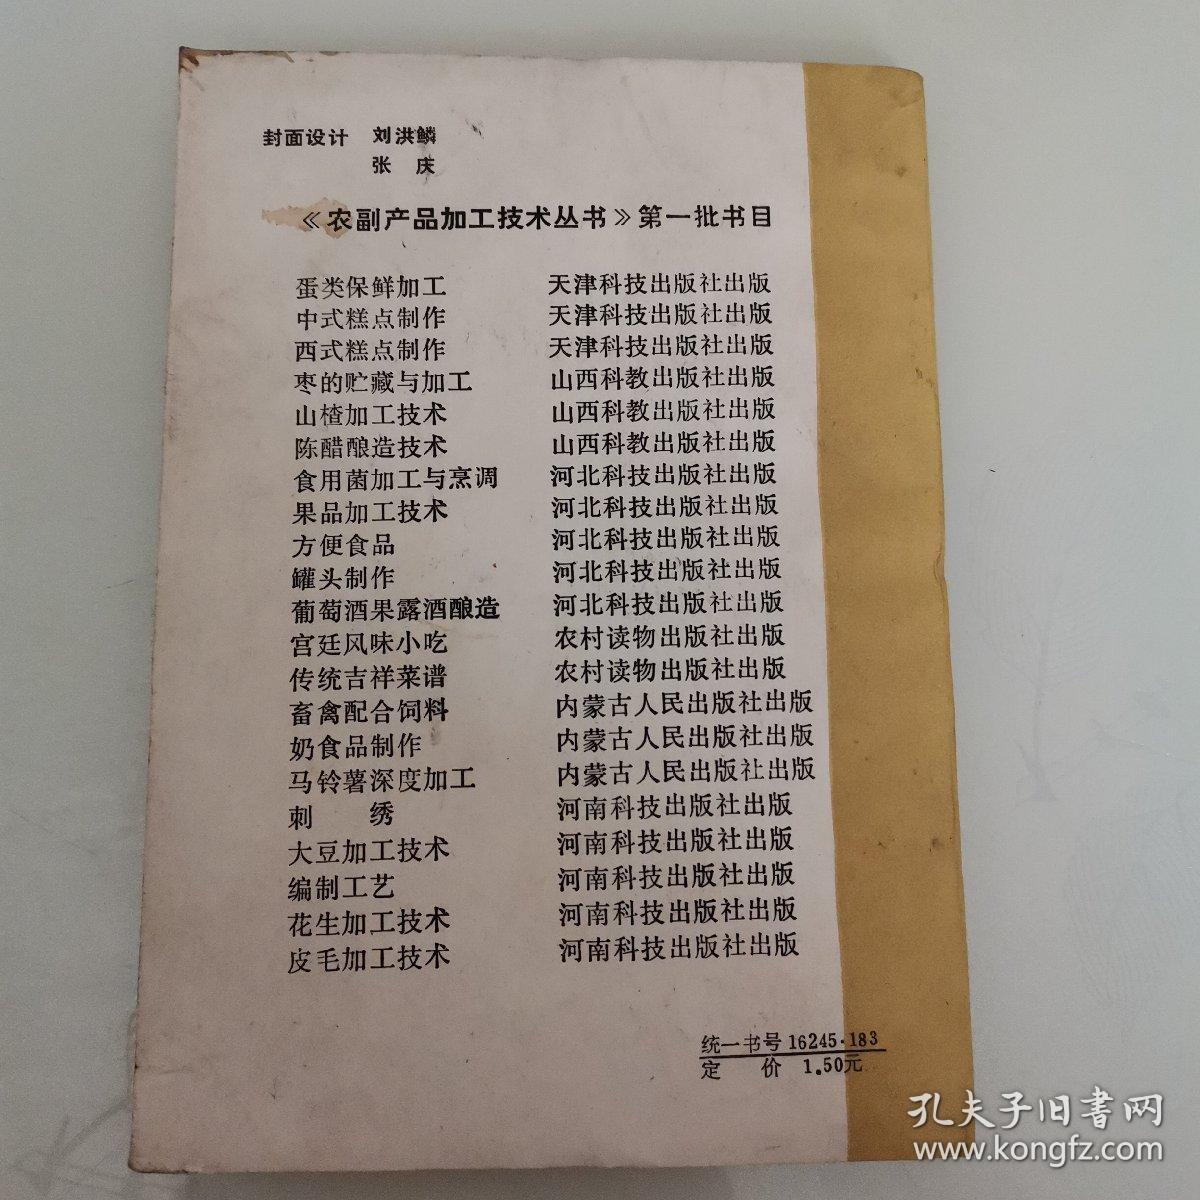 封面设计 刘洪鳞
张 庆
《农副产品加工技术丛书》第一批书目
蛋类保鲜加工 天津科技出版社出版
中式糕点制作 天津科技出版社出版
西式糕点制作 天津科技出版社出版
枣的贮藏与加工 山西科教出版社出版
山楂加工技术 山西科教出版社出版
陈醋酿造技术 山西科教出版社出版
食用菌加工与烹调 河北科技出版社出版
果品加工技术 河北科技出版社出版
方便食品 河北科技出版社出版
罐头制作 河北科技出版社出版
葡萄酒果露酒酿造 河北科技出版社出版
宫廷风味小吃 农村读物出版社出版
传统吉祥菜谱 农村读物出版社出版
畜禽配合饲料 内蒙古人民出版社出版
奶食品制作 内蒙古人民出版社出版
马铃薯深度加工 内蒙古人民出版社出版
刺 绣 河南科技出版社出版
大豆加工技术 河南科技出版社出版
编制工艺 河南科技出版社出版
花生加工技术 河南科技出版社出版
皮毛加工技术 河南科技出版社出版
统一书号 16245·183
定 价 1.50元
孔夫子旧书网
www.kongfz.com